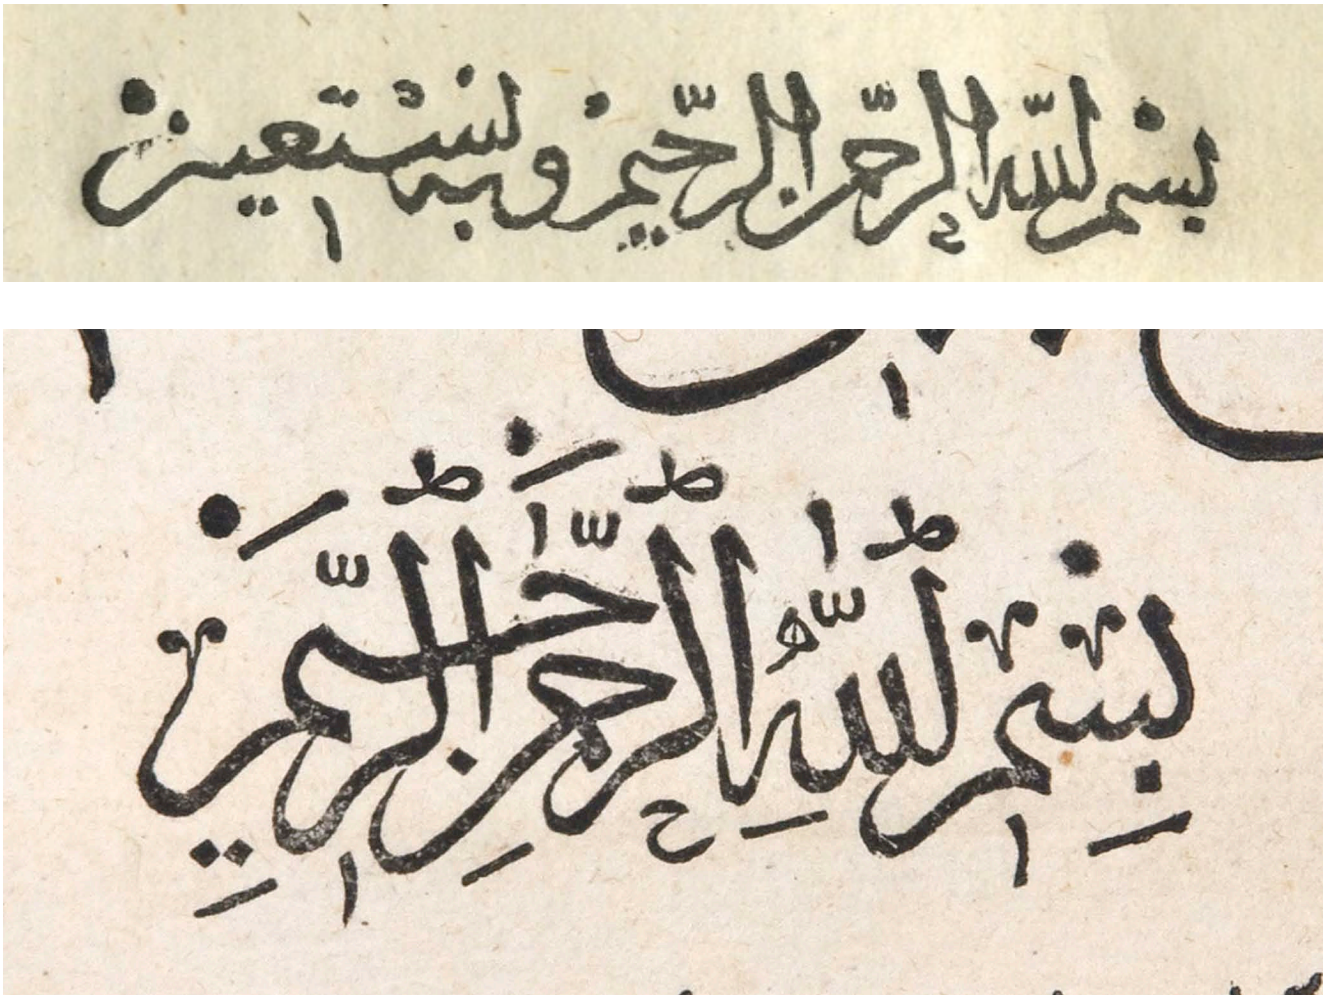 بسم الله الرحمن الرحيم وبه نستعين
بِسْمِ اللهِ الرَّحْمٰنِ الرَّحِيمِ